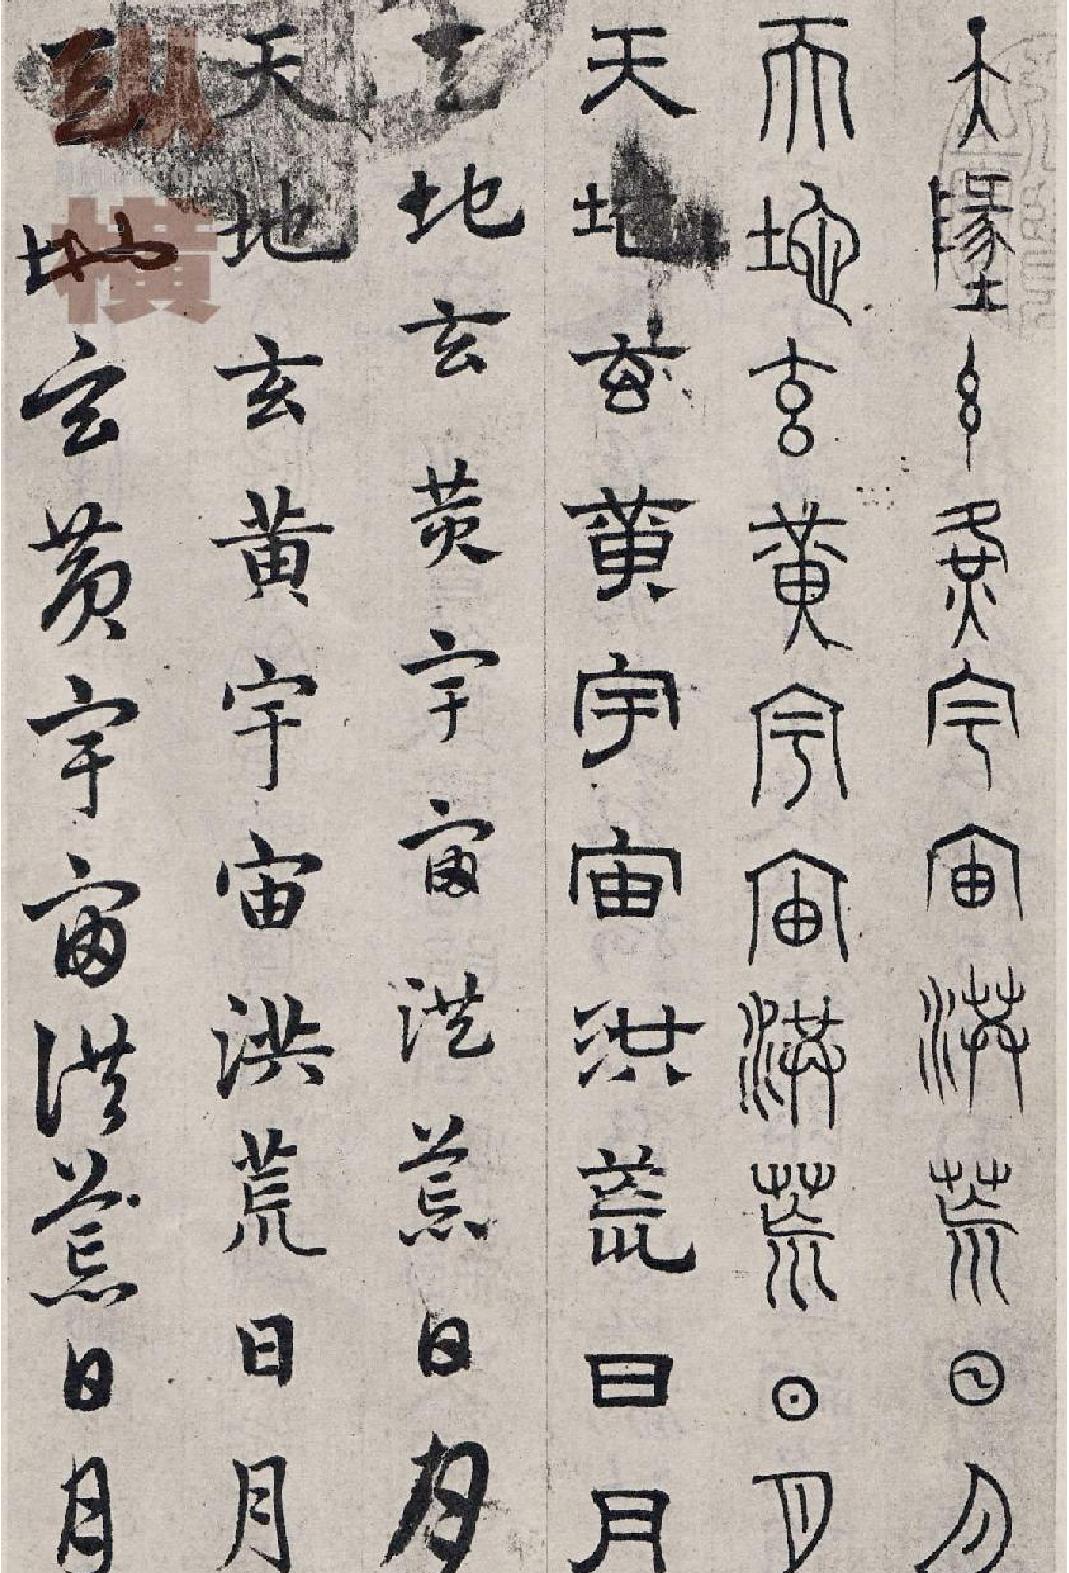 天地玄黃宇宙洪荒日月
天地玄黃宇宙洪荒日月
天地玄黃宇宙洪荒日月
天地玄黃宇宙洪荒日月
天地玄黃宇宙洪荒日月
天地玄黃宇宙洪荒日月
纵横